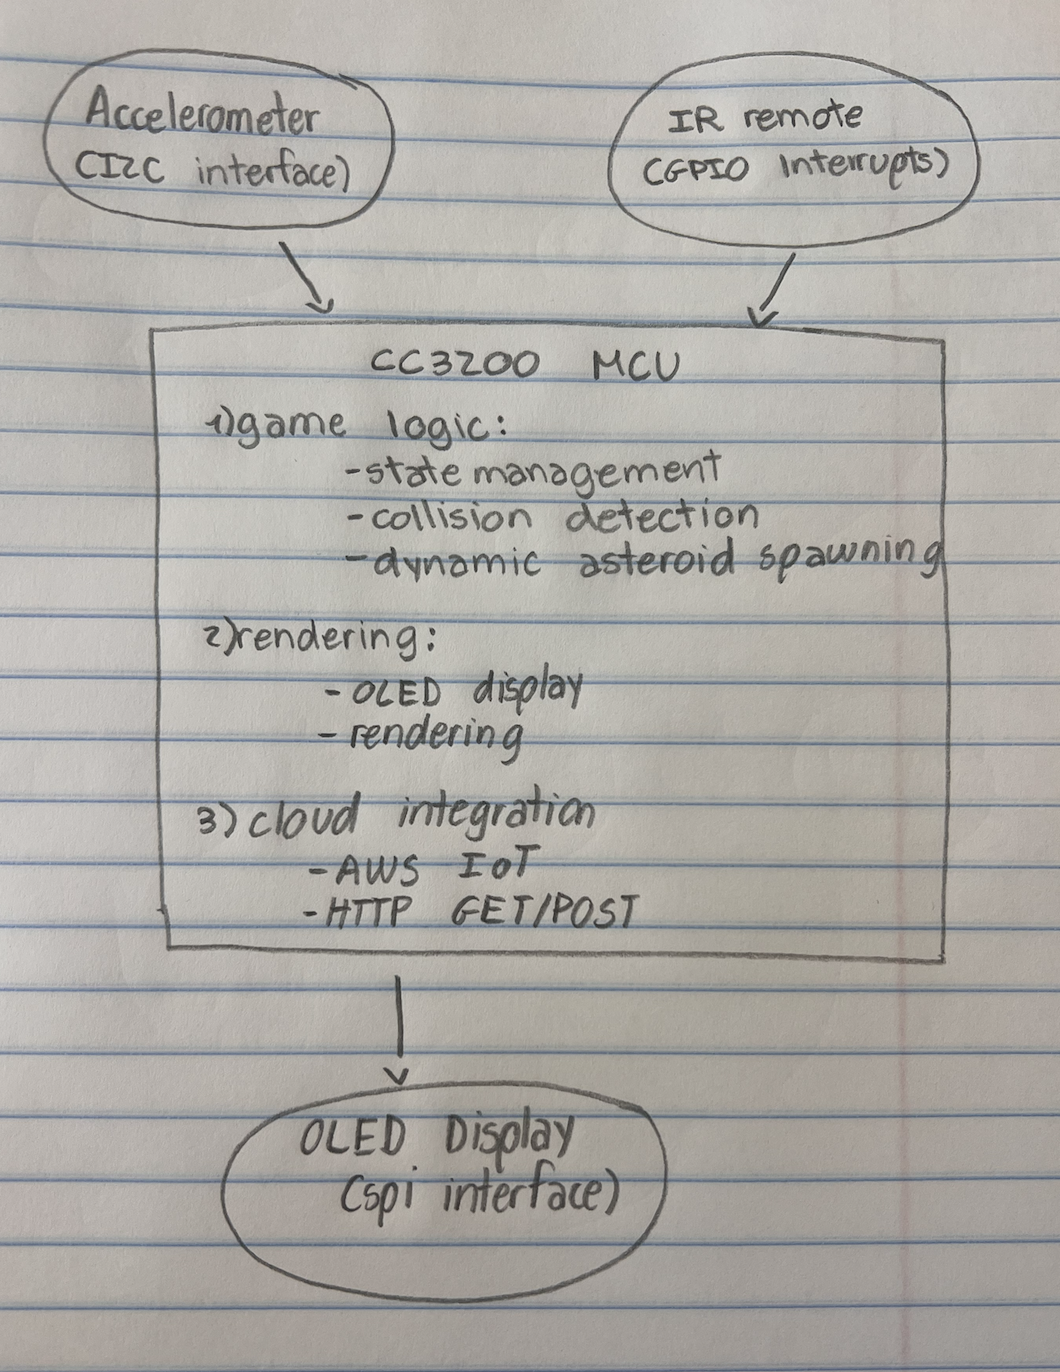 Accelerometer
(I2C interface)
IR remote
(GPIO Interrupts)
CC3200 MCU
1)game logic:
-state management
-collision detection
-dynamic asteroid spawning
2)rendering:
- OLED display
- rendering
3) cloud integration
-AWS IoT
-HTTP GET/POST
OLED Display
(spi interface)